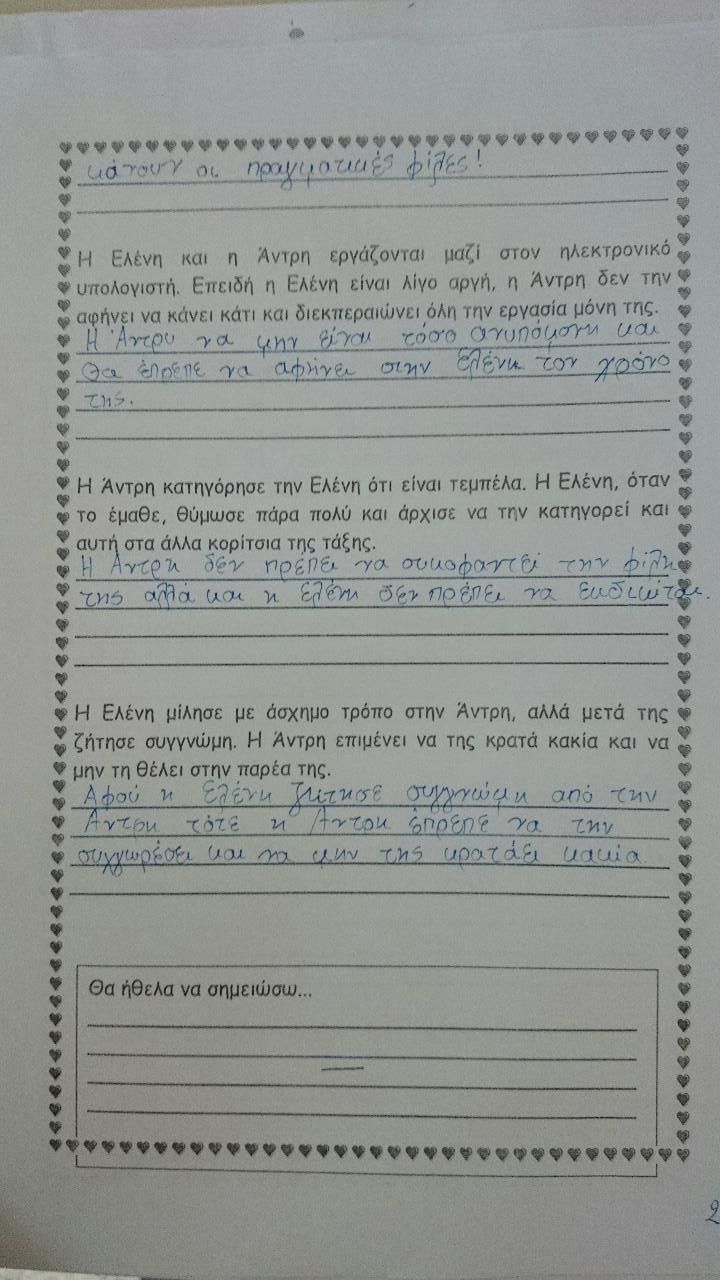 κάνουν οι πραγματικές φίλες!
Η Ελένη και η Άντρη εργάζονται μαζί στον ηλεκτρονικό
υπολογιστή. Επειδή η Ελένη είναι λίγο αργή, η Άντρη δεν την
αφήνει να κάνει κάτι και διεκπεραιώνει όλη την εργασία μόνη της.
Η Άντρυ να μην είναι τόσο ανυπόμονη και
θα έπρεπε να αφήνει στην Ελένη τον χρόνο
της.
Η Άντρη κατηγόρησε την Ελένη ότι είναι τεμπέλα. Η Ελένη, όταν
το έμαθε, θύμωσε πάρα πολύ και άρχισε να την κατηγορεί και
αυτή στα άλλα κορίτσια της τάξης.
Η Άντρη δεν πρέπει να συκοφαντεί την φίλη
της αλλά και η ελένη δεν πρέπει να εκδικιέται.
Η Ελένη μίλησε με άσχημο τρόπο στην Άντρη, αλλά μετά της
ζήτησε συγγνώμη. Η Άντρη επιμένει να της κρατά κακία και να
μην τη θέλει στην παρέα της.
Αφού η Ελένη ζήτησε συγγνώμη από την
Άντρη τότε η Άντρη έπρεπε να την
συγχωρέσει και να μην της κρατάει κακία
Θα ήθελα να σημειώσω...
2